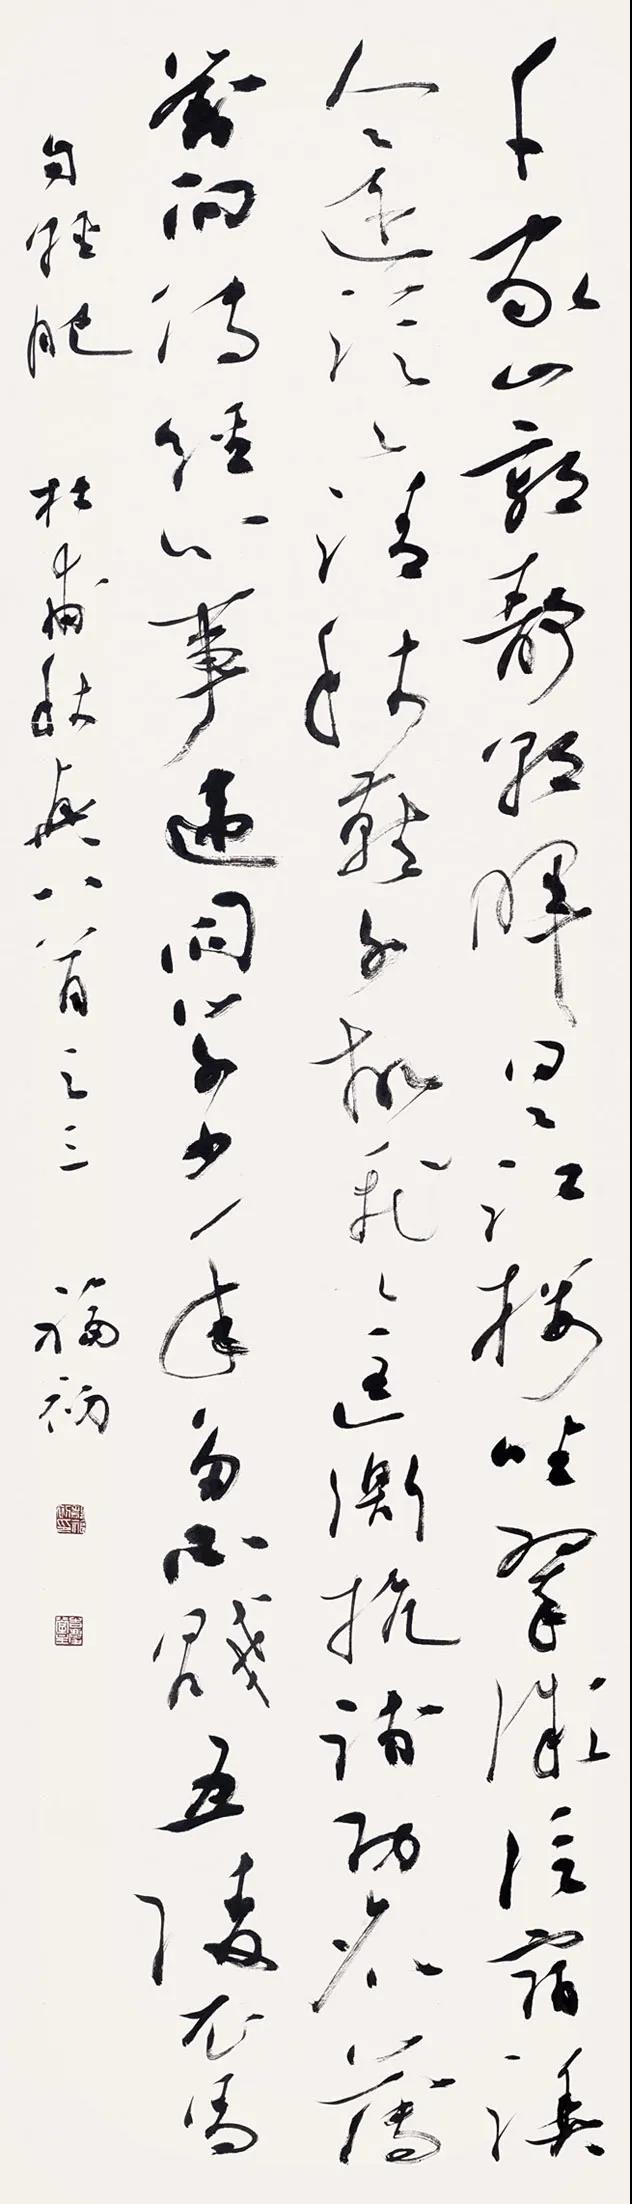 千家山郭靜朝暉日日江樓坐翠微信宿漁
人還泛泛清秋燕子故飛飛匡衡抗疏功名薄
劉向傳經心事違同學少年多不賤五陵衣馬
自輕肥 杜甫秋興八首之三 福初